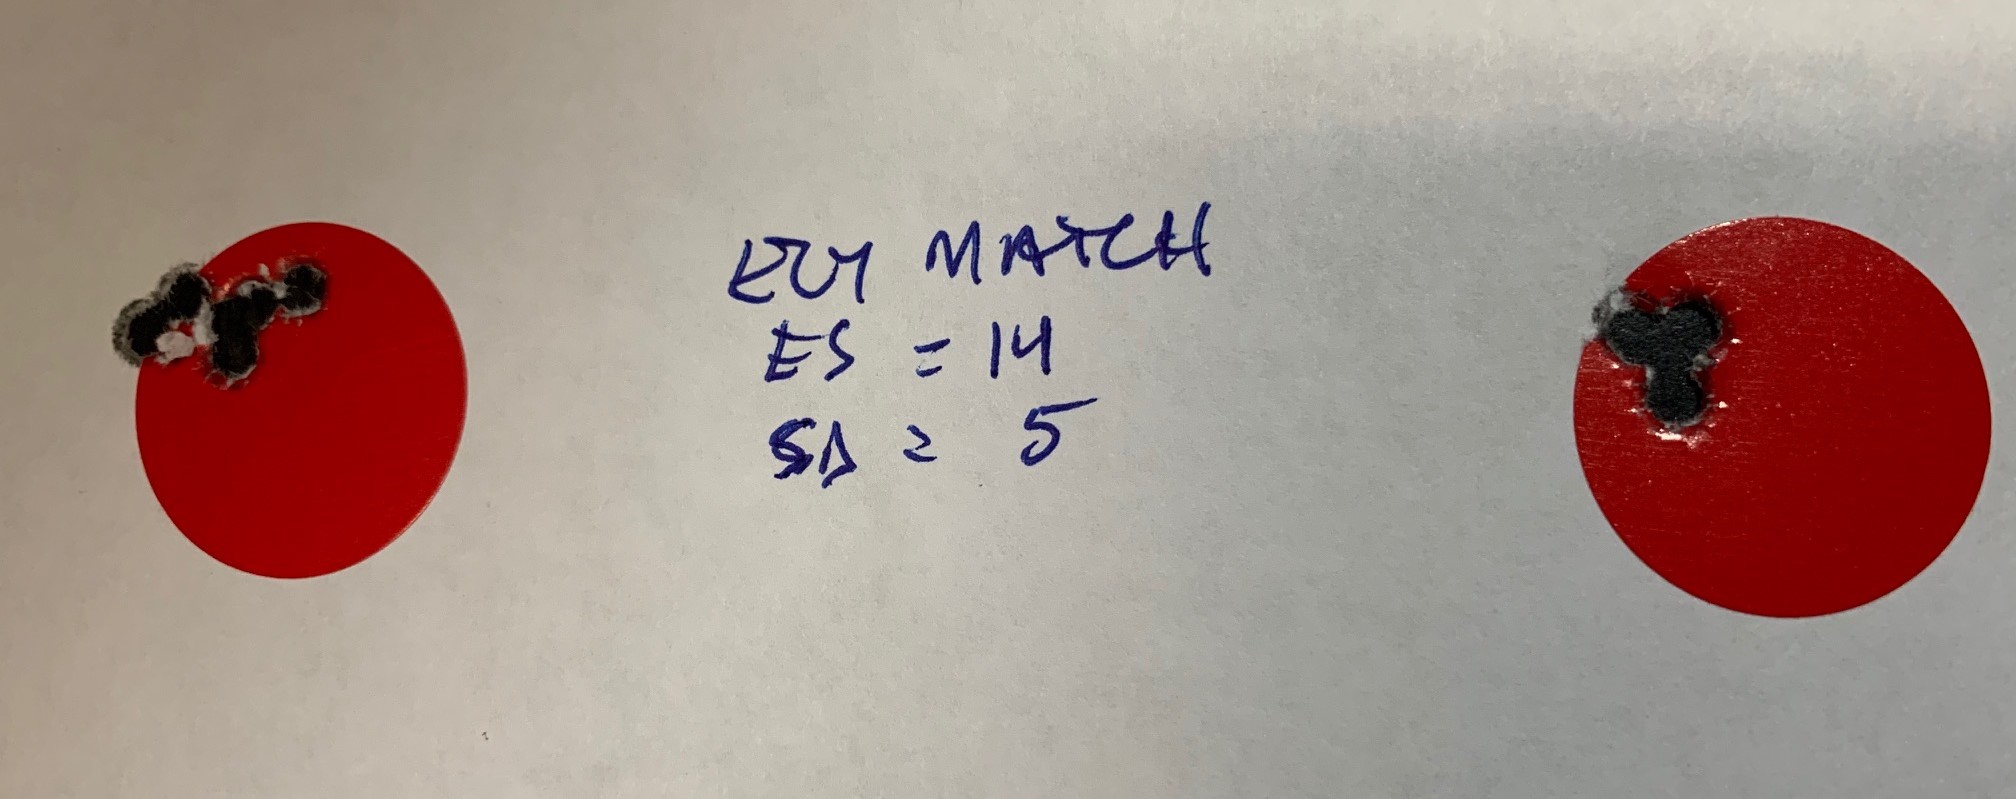 MATCH
ES = 14
SD = 5